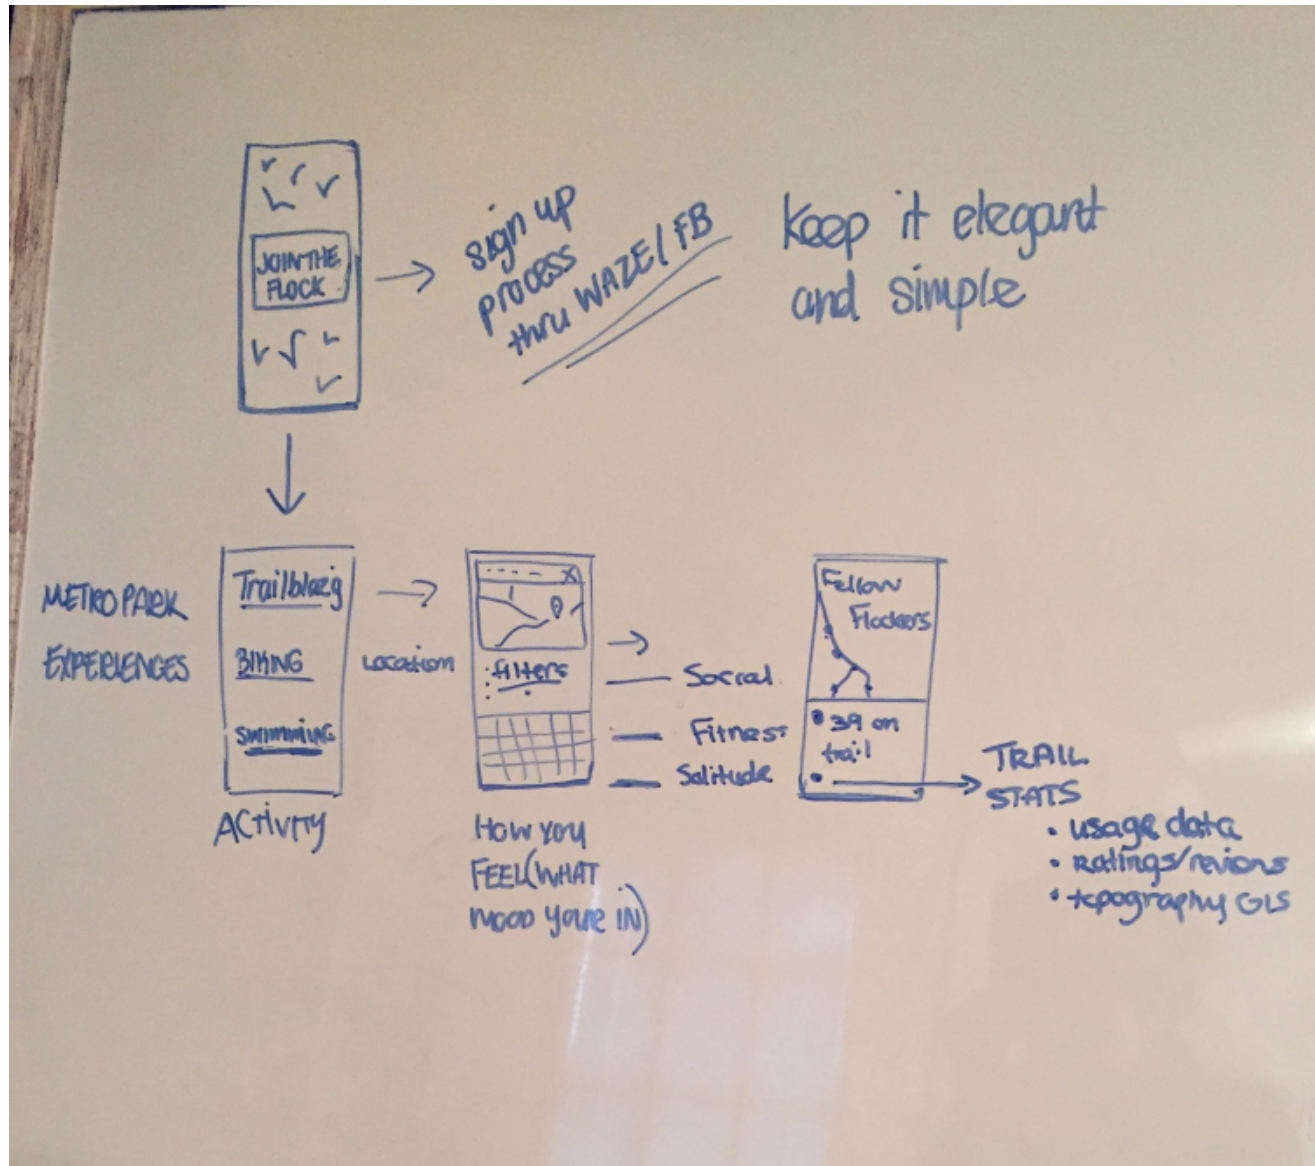 JOIN THE
FLOCK
sign up
process
thru WAZE/FB
Keep it elegant
and simple
METRO PARK
EXPERIENCES
Trailblazig
BIKING
SWIMMING
ACTIVITY
LOCATION
filters
HOW YOU
FEEL(WHAT
MOOD YOURE IN)
Social
Fitness
Solitude
Fellow
Flockers
39 on
trail
TRAIL
STATS
• usage data
• Ratings/reviews
• topography GIS